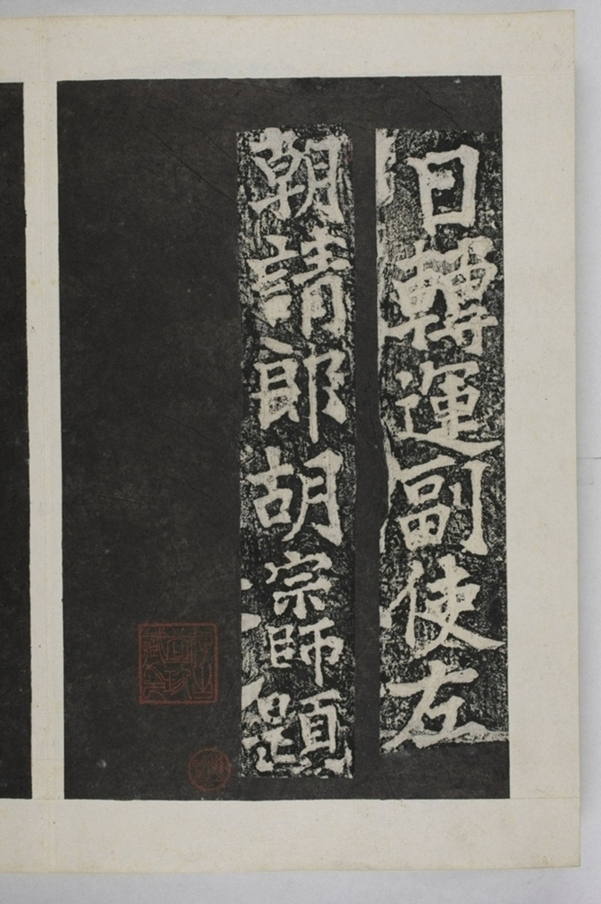 日轉運副使左
朝請郎胡宗師題